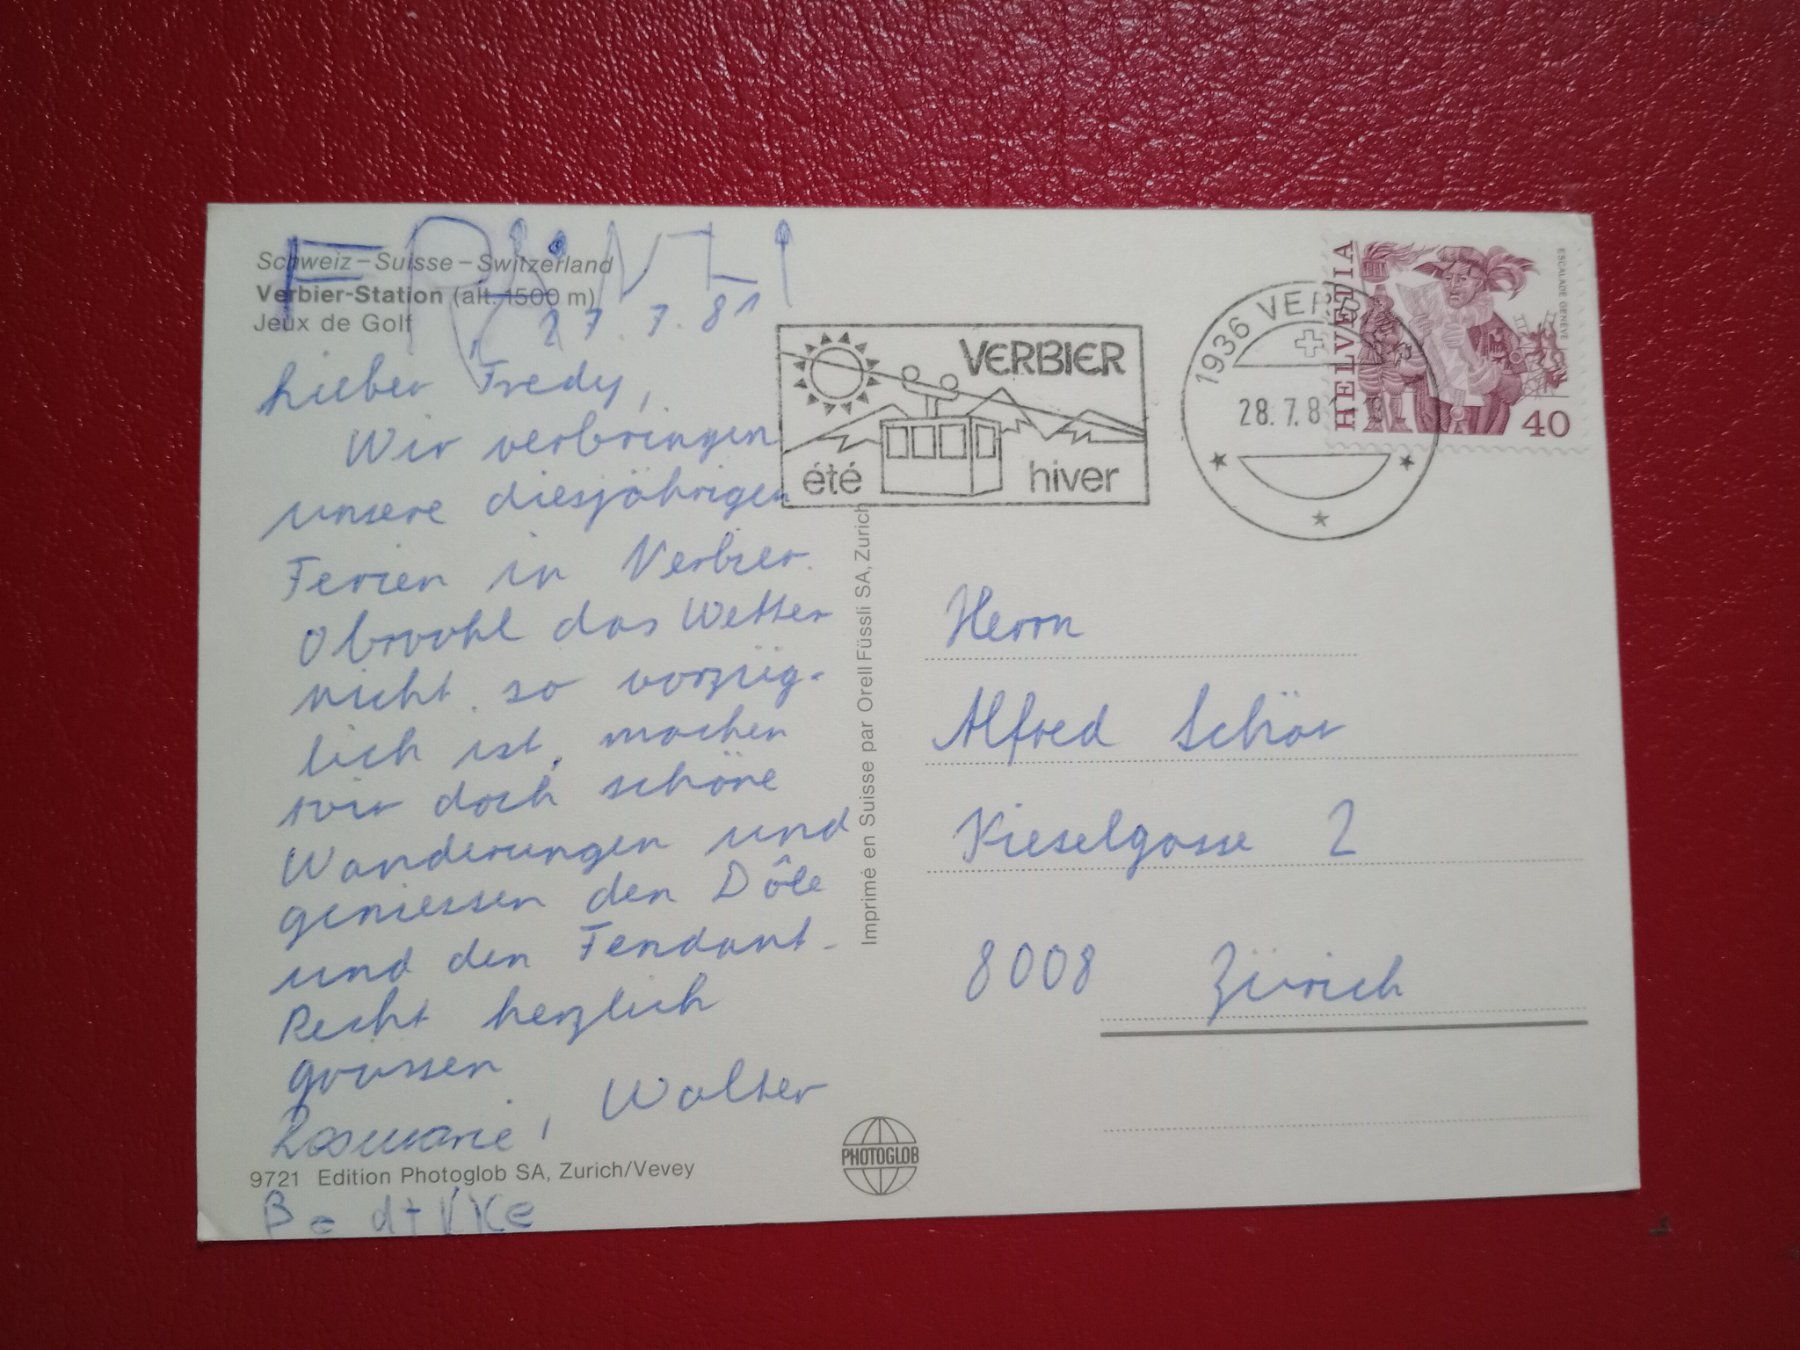 Schweiz – Suisse – Switzerland
Verbier-Station (alt. 1500 m)
Jeux de Golf
27. 7. 81
Lieber Fredy,
Wir verbringen
unsere diesjährigen
Ferien in Verbier.
Obwohl das Wetter
nicht so vorzüg-
lich ist, machen
wir doch schöne
Wanderungen und
geniessen den Dôle
und den Fendant.
Recht herzlich
grüssen
Rosmarie, Walter
9721 Edition Photoglob SA, Zurich/Vevey
Imprimé en Suisse par Orell Füssli SA, Zurich
VERBIER
été hiver
1936 VERB
28.7.81
HELVETIA
ESCALADE GENÈVE
40
Herrn
Alfred Schär
Kieselgasse 2
8008 Zürich
PHOTOGLOB